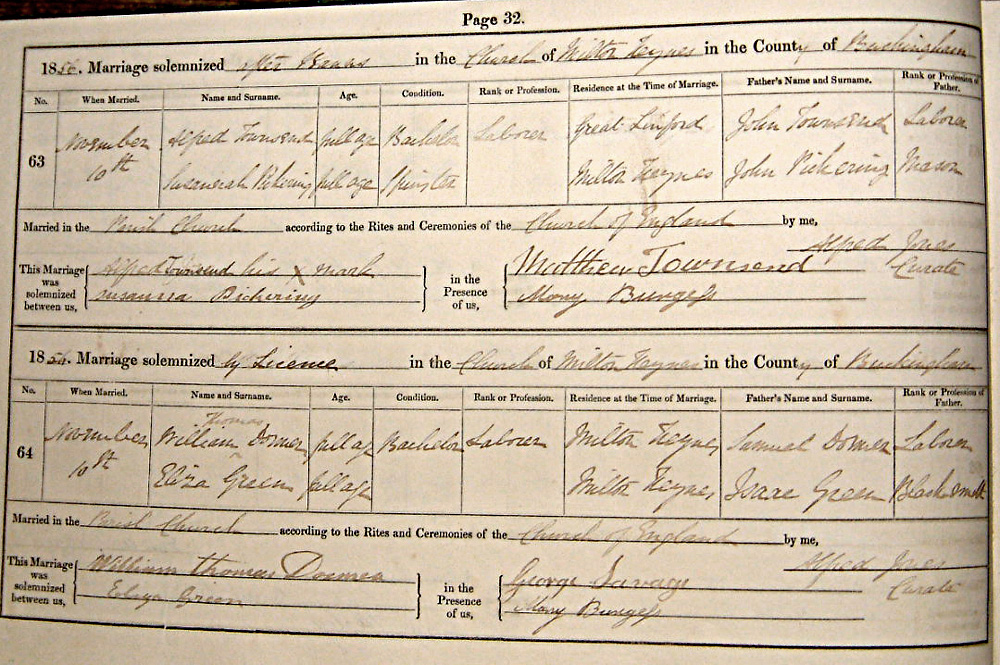 Page 32.
1856. Marriage solemnized after Banns in the Church of Milton Keynes in the County of Buckingham
No. When Married. Name and Surname. Age. Condition. Rank or Profession. Residence at the Time of Marriage. Father's Name and Surname. Rank or Profession of Father.
63 November 10th Alfred Townsend full age Bachelor Laborer Great Linford John Townsend Laborer
Susannah Pickering full age Spinster Milton Keynes John Pickering Mason
Married in the Parish Church according to the Rites and Ceremonies of the Church of England by me,
Alfred Jones Curate
This Marriage was solemnized between us,
Alfred Townsend his X mark
Susanna Pickering
in the Presence of us,
Matthew Townsend
Mary Burgess
1856. Marriage solemnized by Licence in the Church of Milton Keynes in the County of Buckingham
No. When Married. Name and Surname. Age. Condition. Rank or Profession. Residence at the Time of Marriage. Father's Name and Surname. Rank or Profession of Father.
64 November 10th William Thomas Dormer full age Bachelor Laborer Milton Keynes Samuel Dormer Laborer
Eliza Green full age Milton Keynes Isaac Green Blacksmith
Married in the Parish Church according to the Rites and Ceremonies of the Church of England by me,
Alfred Jones Curate
This Marriage was solemnized between us,
William Thomas Dormer
Eliza Green
in the Presence of us,
George Savage
Mary Burgess